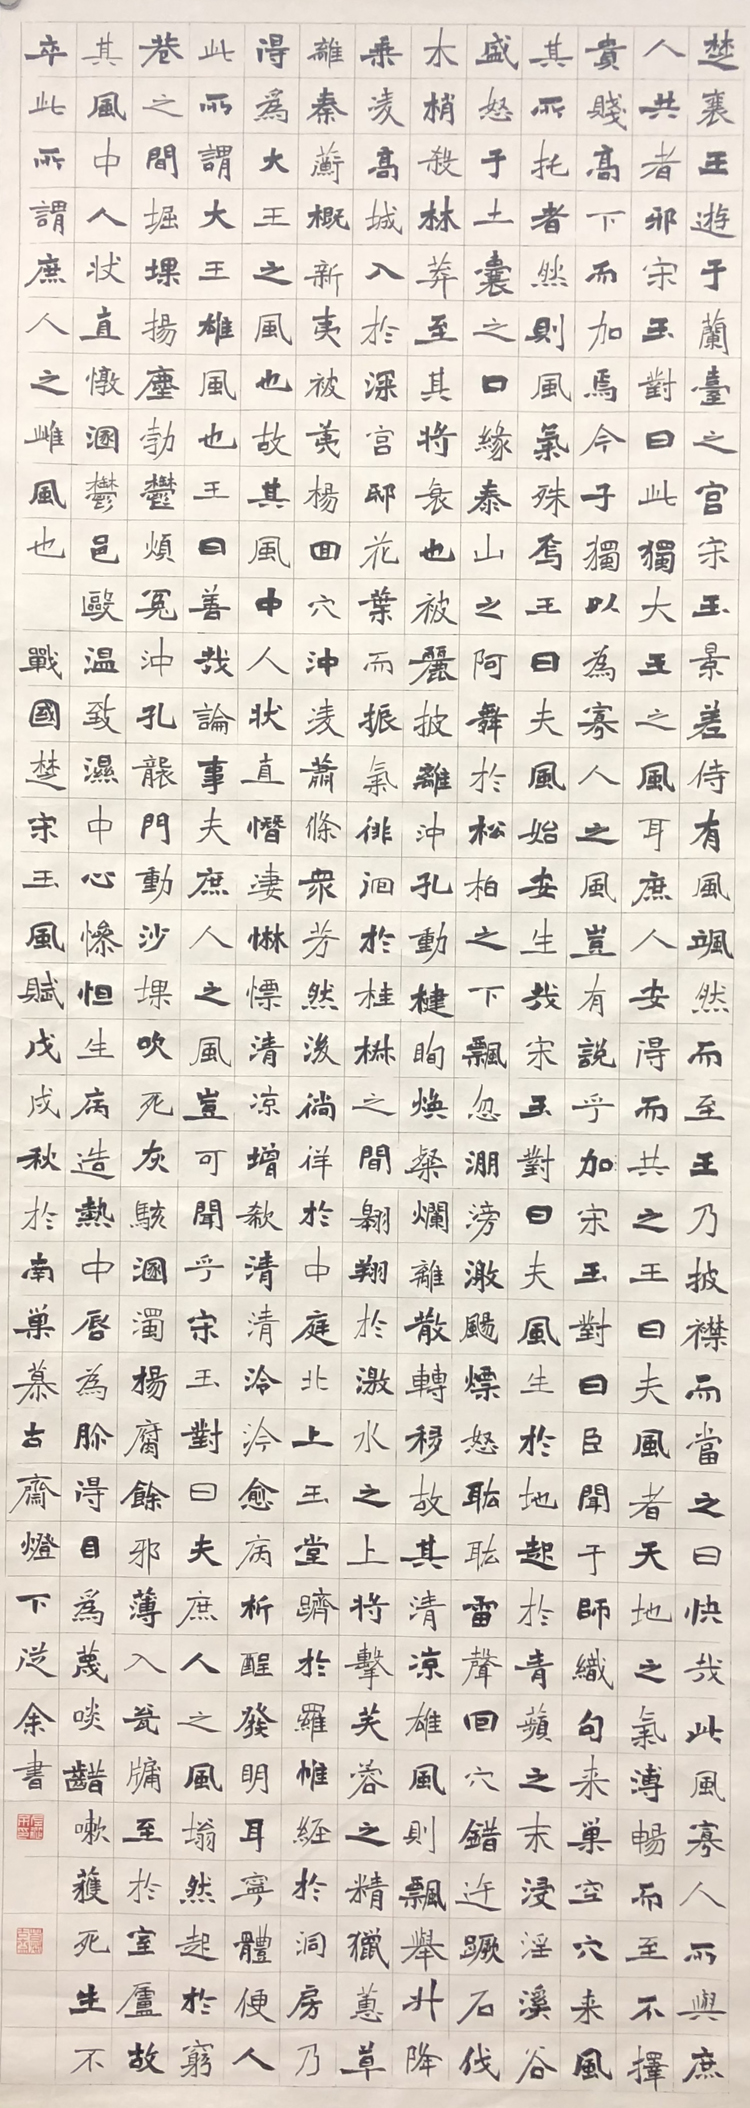 楚襄王遊于蘭臺之宫宋玉景差侍有風颯然而至王乃披襟而當之曰快哉此風寡人所與庶
人共者邪宋玉對曰此獨大王之風耳庶人安得而共之王曰夫風者天地之氣溥暢而至不擇
貴賤高下而加焉今子獨以為寡人之風豈有說乎加宋玉對曰臣聞于師織句来巢空穴来風
其所托者然則風氣殊焉王曰夫風始安生哉宋玉對曰夫風生於地起於青蘋之末浸淫溪谷
盛怒于土囊之口緣泰山之阿舞於松柏之下飄忽淜滂激颺熛怒耾耾雷聲回穴錯迕蹶石伐
木梢殺林莽至其将衰也被麗披離沖孔動楗眴焕粲爛離散轉移故其清凉雄風則飄舉升降
乗凌高城入於深宫邸花葉而振氣徘徊於桂椒之間翱翔於激水之上将擊芙蓉之精獵蕙草
離秦蘅概新夷被荑楊回穴沖凌蕭條衆芳然後徜徉於中庭北上玉堂躋於羅帷經於洞房乃
得為大王之風也故其風中人状直憯凄惏慄清凉增欷清清泠泠愈病析酲發明耳寧體便人
此所謂大王雄風也王曰善哉論事夫庶人之風豈可聞乎宋玉對曰夫庶人之風塕然起於窮
巷之間堀堁揚塵勃鬱煩冤沖孔襲門動沙堁吹死灰駭溷濁揚腐餘邪薄入瓮牖至於室廬故
其風中人状直憞溷鬱邑毆温致濕中心慘怛生病造熱中唇為胗得目為蔑啖齰嗽獲死生不
卒此所謂庶人之雌風也 戰國楚宋玉風賦戊戌秋於南巢慕古齋燈下從余書